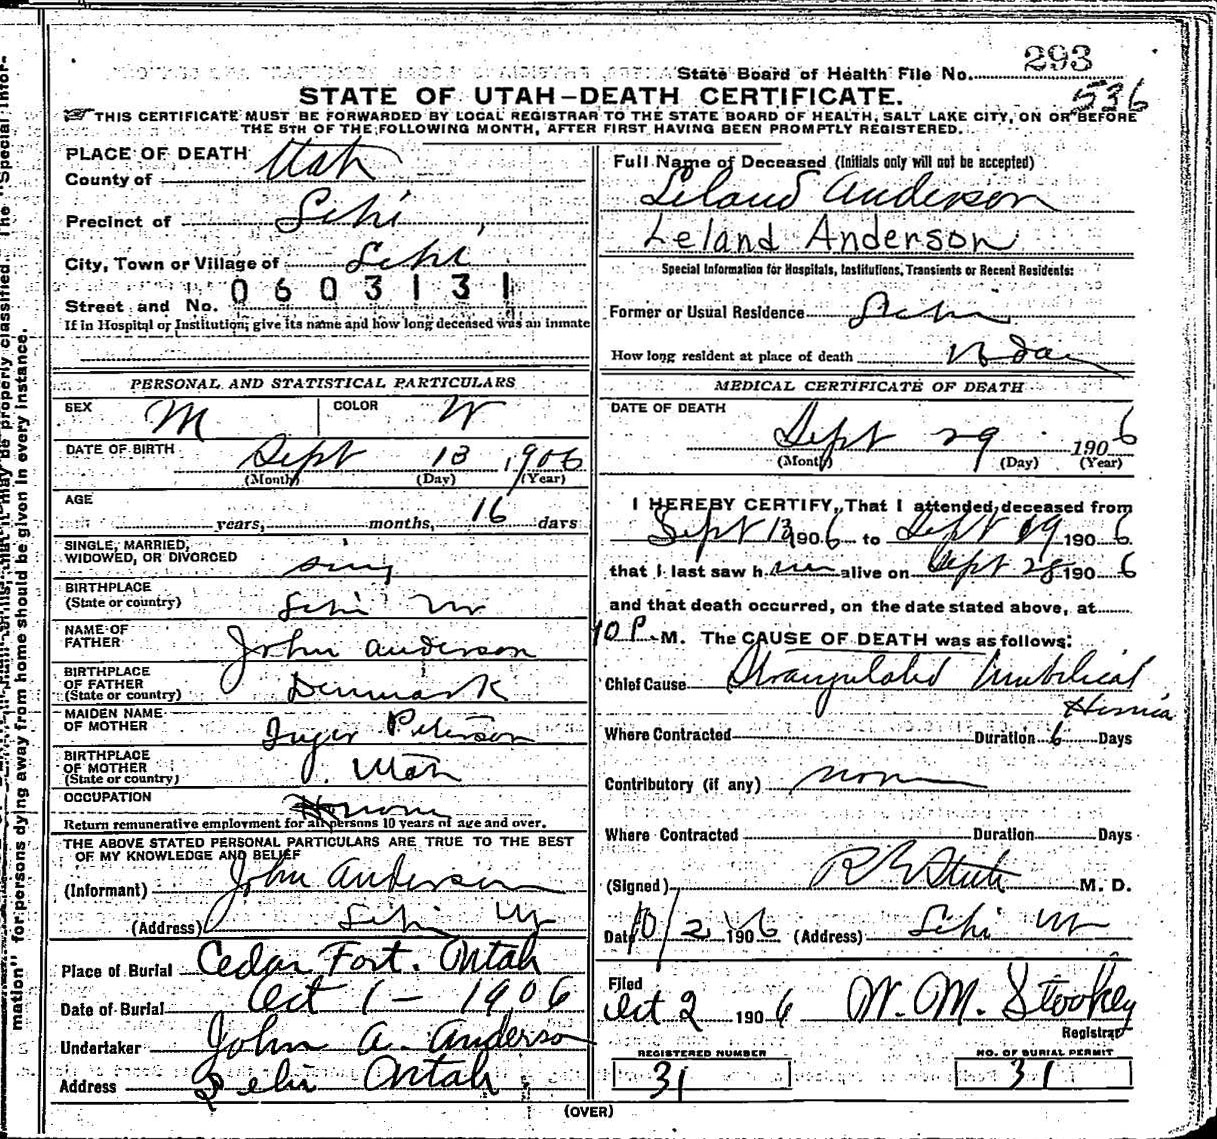 State Board of Health File No. 293
536
STATE OF UTAH—DEATH CERTIFICATE.
THIS CERTIFICATE MUST BE FORWARDED BY LOCAL REGISTRAR TO THE STATE BOARD OF HEALTH, SALT LAKE CITY, ON OR BEFORE
THE 5TH OF THE FOLLOWING MONTH, AFTER FIRST HAVING BEEN PROMPTLY REGISTERED.
PLACE OF DEATH
County of Utah
Precinct of Lehi
City, Town or Village of Lehi
Street and No. 0603131
If in Hospital or Institution, give its name and how long deceased was an inmate
PERSONAL AND STATISTICAL PARTICULARS
SEX M COLOR W
DATE OF BIRTH Sept 13 1906
(Month) (Day) (Year)
AGE
years, months, 16 days
SINGLE, MARRIED,
WIDOWED, OR DIVORCED sing
BIRTHPLACE
(State or country) Lehi Ut
NAME OF
FATHER John Anderson
BIRTHPLACE
OF FATHER
(State or country) Denmark
MAIDEN NAME
OF MOTHER Inger Peterson
BIRTHPLACE
OF MOTHER
(State or country) Utah
OCCUPATION
Return remunerative employment for all persons 10 years of age and over.
THE ABOVE STATED PERSONAL PARTICULARS ARE TRUE TO THE BEST
OF MY KNOWLEDGE AND BELIEF
(Informant) John Anderson
(Address) Lehi Ut
Place of Burial Cedar Fort. Utah
Date of Burial Oct 1 — 1906
Undertaker John A. Anderso
Address Lehi Utah
Full Name of Deceased (Initials only will not be accepted)
Leland Anderson
Leland Anderson
Special Information for Hospitals, Institutions, Transients or Recent Residents:
Former or Usual Residence Lehi
How long resident at place of death
MEDICAL CERTIFICATE OF DEATH
DATE OF DEATH
Sept 29 1906
(Month) (Day) (Year)
I HEREBY CERTIFY, That I attended deceased from
Sept 13 1906 to Sept 1906
that I last saw h alive on Sept 28 1906
and that death occurred, on the date stated above, at
10 P M. The CAUSE OF DEATH was as follows:
Chief Cause Strangulated Umbilical
Hernia
Where Contracted Duration 6 Days
Contributory (if any) none
Where Contracted Duration Days
(Signed) M. D.
Date 10/2 1906 (Address) Lehi Ut
Filed
Oct 2 1906 W. M. Stookey
Registrar
REGISTERED NUMBER NO. OF BURIAL PERMIT
31 31
(OVER)
mation" for persons dying away from home should be given in every instance.